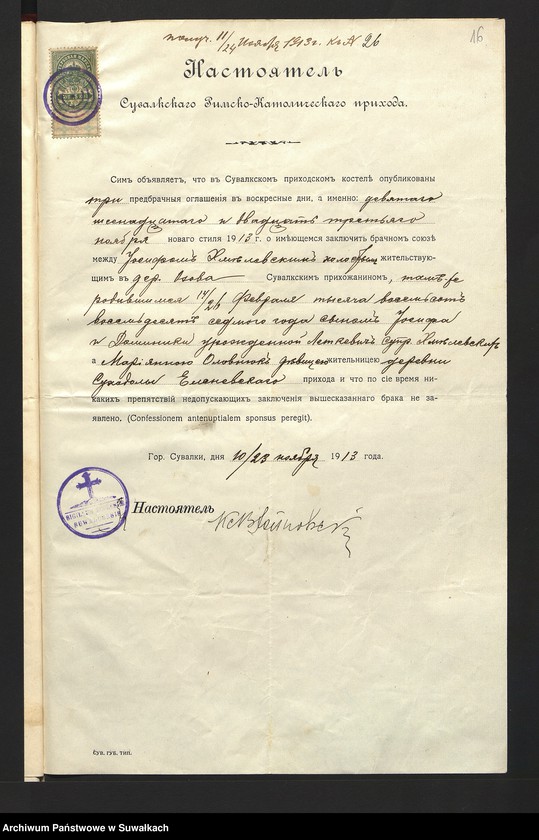 получ. 11/24 Ноября 1913 г. къ № 26
16
Настоятель
Сувалкскаго Римско-Католическаго прихода.
Симъ объявляетъ, что въ Сувалкскомъ приходскомъ костелѣ опубликованы
три предбрачныя оглашенія въ воскресные дни, а именно: девятаго
шеснадцатаго и двадцать третьяго
ноября новаго стиля 1913 г. о имѣющемся заключить брачномъ союзѣ
между Іосифомъ Хмѣлевскимъ холостымъ жительствую-
щимъ въ дер. Озова Сувалкскимъ прихожаниномъ, тамъ-же
родившимся 14/26 Февраля тысяча восемьсотъ
восемьдесятъ седьмого года сыномъ Іосифа
и Доминики урожденной Леткевичъ супр. Хмѣлевскихъ
а Маріянною Оловнюкъ дѣвицею жительницею деревни
Суходолы Еленевскаго прихода и что по сіе время ни-
какихъ препятствій недопускающихъ заключенія вышесказаннаго брака не за-
явлено. (Confessionem antenuptialem sponsus peregit).
Гор. Сувалки, дня 10/23 ноября 1913 года.
Настоятель
Сув. губ. тип.
Archiwum Państwowe w Suwałkach